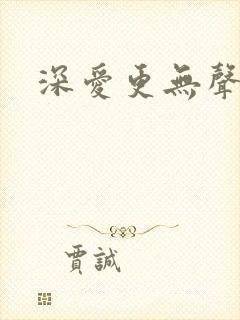 深愛更無聲
賈誠